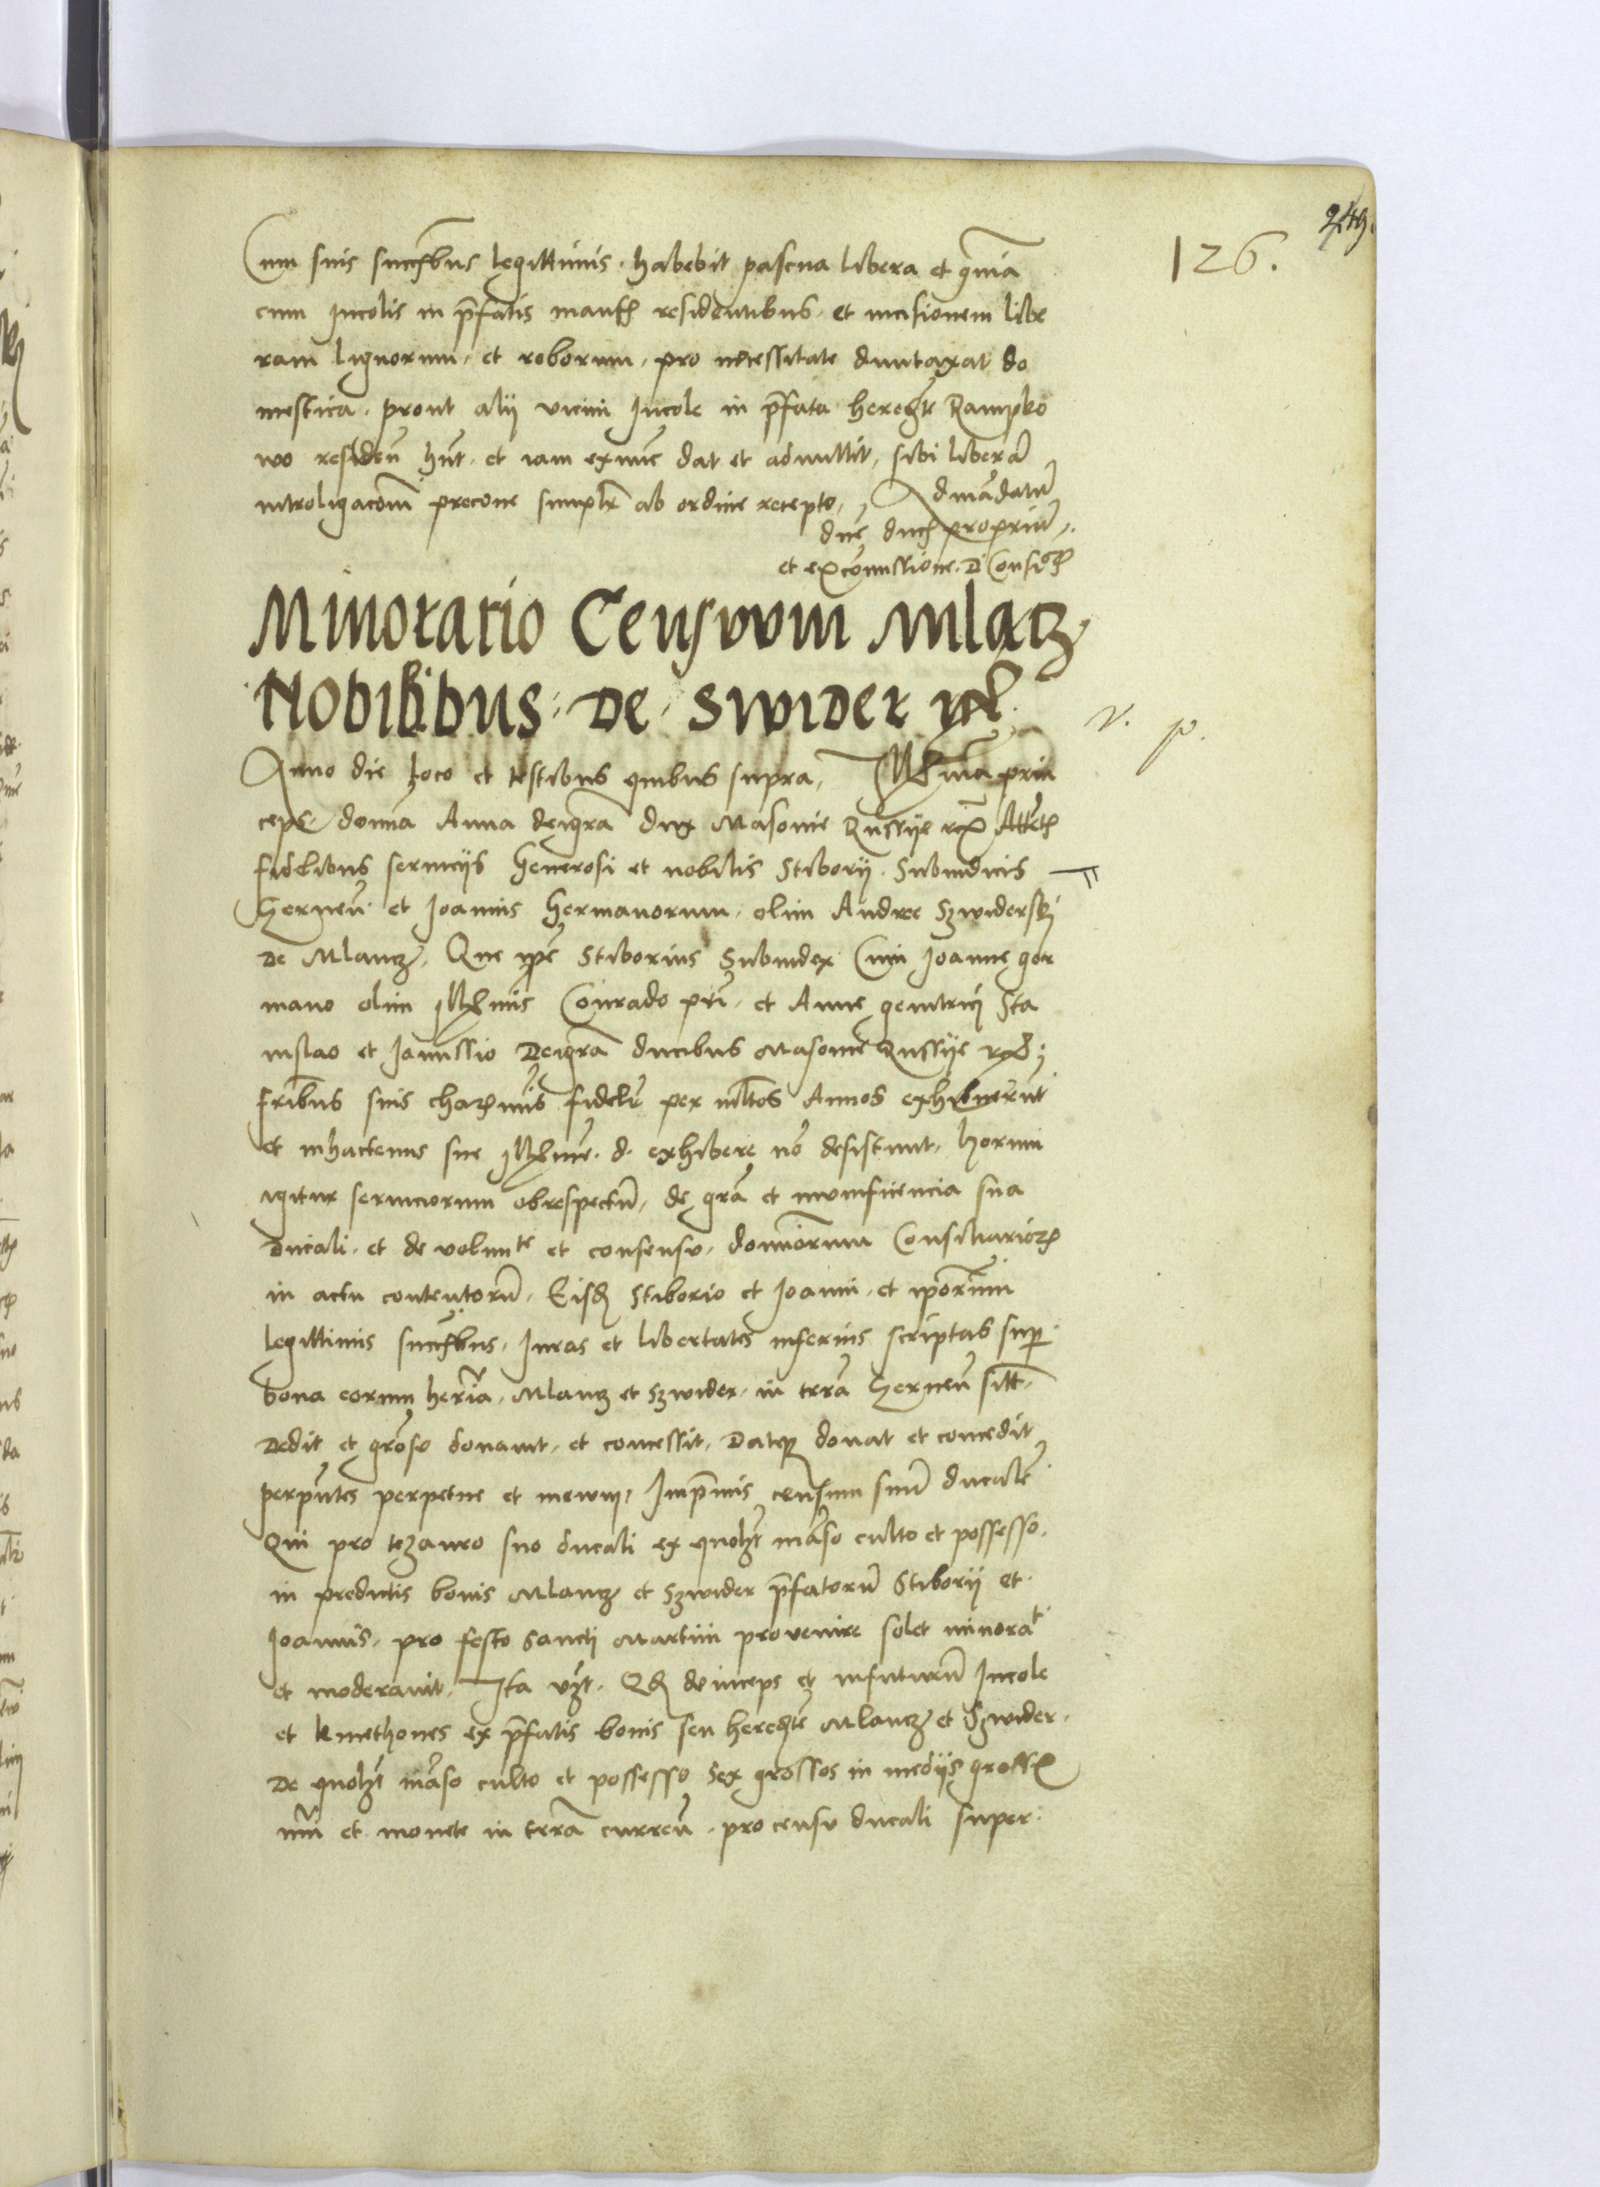 249.
126.
Cum suis succſſbus legittimis. habebit pascua libera et gͫnia
cum Incolis in p̄fatis manſis residentibus. et incisionem libe
ram lignorum. et roborum. pro necessitate duntaxat do
mestica. prout alij vicini Incole in p̄fata heredte Rampko
wo residen̄ hnt. et iam exnunc dat et admittit, sibi liberā
introligacōnē precone simplr̄ ab ordine recepto, Admādatū
dnē ducͦ propriū.
et ex cōmissione. D Consiͦ
Minoratio Censuum Mlacz
Nobilibus. De. Swider
v. p.
Anno die loco et testibus quibus supra, Illma prin
ceps domā Anna deigrā dux Masovie Russije Attētͦ
fidelibus seruicijs Generosi et nobilis Stiborij. Subiudicis
Gernen̄. et Joannis Germanorum. olim Andree Szwiderskj
De Mlancz, Que ipē Stiborius Subiudex Cum Joanne ger
mano olim Illmis Conrado pri. et Anne genitricj Sta
nislao et Janussio Deigrā ducibus Masovie Russije
Fribus suis charͦmis fidelr̄ per mltos Annos exhibuerūt
et inhactenus sue Illme. d. exhibere nō desistunt, horum
igitur seruiciorum obrespectū, de grā et munificencia sua
ducali. et de volunte et consensu. domiorum Consiliarioꝝ
in actu contentorū. Eisdͦ Stiborio et Joanni. et ipōrum
legittimis succſſbus. Iuras et libertates inferius scriptas super
bona eorum herīa. Mlancz et Szwider. in terrā Gernen̄ sitt.
Dedit et grōse donauit. et concessit. Datqꝫ donat et concedit
perpn̄tes perpetue et ineuum, Imp̄mis censum suū ducalē
Qui pro tezauro suo ducali ex quolꝫt māso culto et possesso.
in predictis bonis Mlancz et Szwider p̄fatorū Stiborij et
Joannis. pro festo Sanctj Martini provenire solet minorat
et moderauit. Ita vꝫt. Qdͦ deinceps et infuturū Incole
et kmethones ex p̄fatis bonis seu heredte Mlancz et Szwider.
De quolꝫt māso culto et possesso sex grossos in medijs grossͦ
nūi et monete in terrā curren̄. pro censu ducali super.